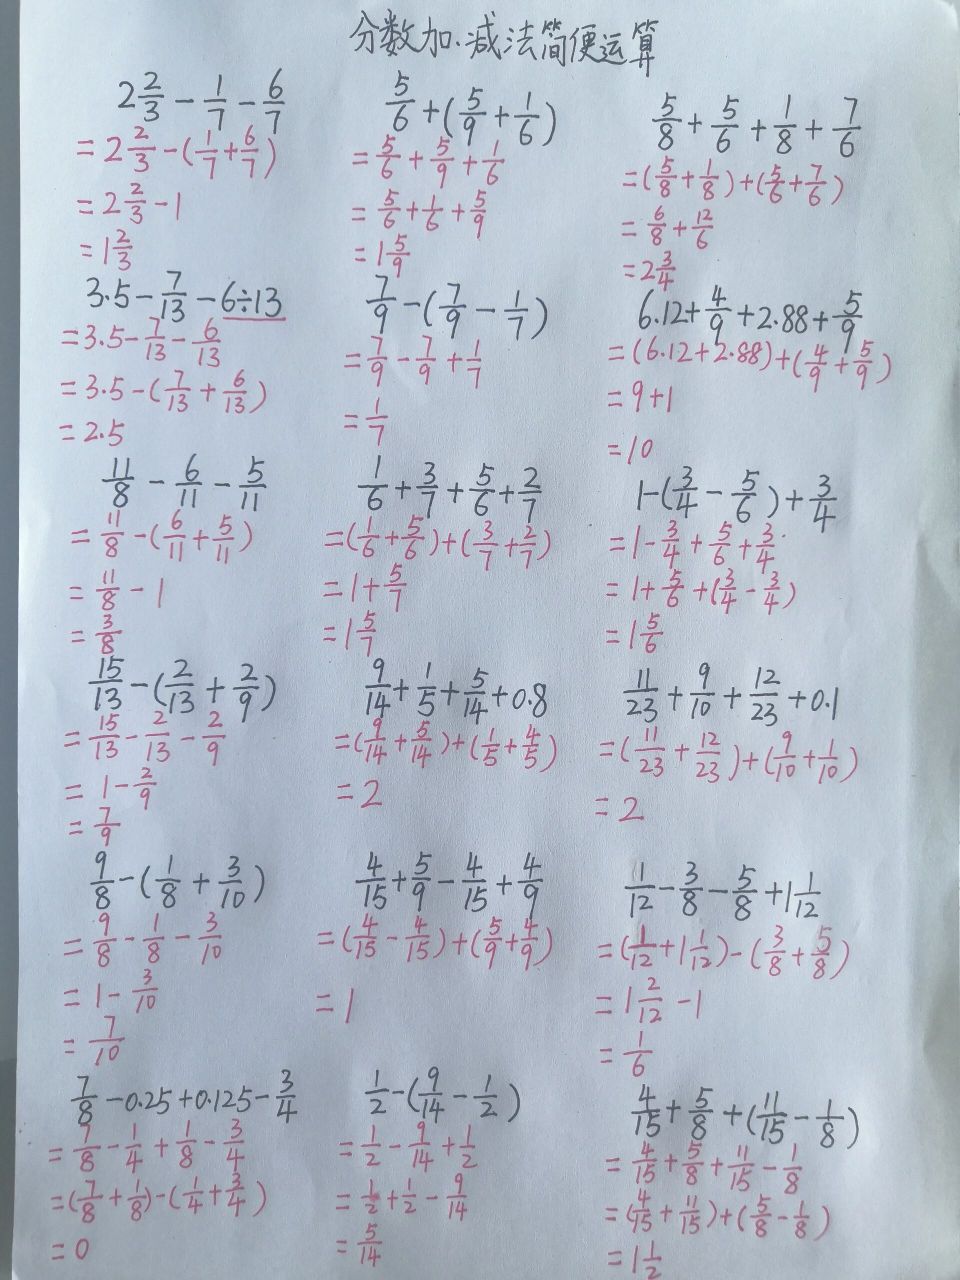 分数加.减法简便运算
2 2/3 - 1/7 - 6/7
= 2 2/3 - (1/7 + 6/7)
= 2 2/3 - 1
= 1 2/3
5/6 + (5/9 + 1/6)
= 5/6 + 5/9 + 1/6
= 5/6 + 1/6 + 5/9
= 1 5/9
5/8 + 5/6 + 1/8 + 7/6
= (5/8 + 1/8) + (5/6 + 7/6)
= 6/8 + 12/6
= 2 3/4
3.5 - 7/13 - 6÷13
= 3.5 - 7/13 - 6/13
= 3.5 - (7/13 + 6/13)
= 2.5
7/9 - (7/9 - 1/7)
= 7/9 - 7/9 + 1/7
= 1/7
6.12 + 4/9 + 2.88 + 5/9
= (6.12 + 2.88) + (4/9 + 5/9)
= 9 + 1
= 10
11/8 - 6/11 - 5/11
= 11/8 - (6/11 + 5/11)
= 11/8 - 1
= 3/8
1/6 + 3/7 + 5/6 + 2/7
= (1/6 + 5/6) + (3/7 + 2/7)
= 1 + 5/7
= 1 5/7
1 - (3/4 - 5/6) + 3/4
= 1 - 3/4 + 5/6 + 3/4
= 1 + 5/6 + (3/4 - 3/4)
= 1 5/6
15/13 - (2/13 + 2/9)
= 15/13 - 2/13 - 2/9
= 1 - 2/9
= 7/9
9/14 + 1/5 + 5/14 + 0.8
= (9/14 + 5/14) + (1/5 + 4/5)
= 2
11/23 + 9/10 + 12/23 + 0.1
= (11/23 + 12/23) + (9/10 + 1/10)
= 2
9/8 - (1/8 + 3/10)
= 9/8 - 1/8 - 3/10
= 1 - 3/10
= 7/10
4/15 + 5/9 - 4/15 + 4/9
= (4/15 - 4/15) + (5/9 + 4/9)
= 1
1/12 - 3/8 - 5/8 + 1 1/12
= (1/12 + 1 1/12) - (3/8 + 5/8)
= 1 2/12 - 1
= 1/6
7/8 - 0.25 + 0.125 - 3/4
= 7/8 - 1/4 + 1/8 - 3/4
= (7/8 + 1/8) - (1/4 + 3/4)
= 0
1/2 - (9/14 - 1/2)
= 1/2 - 9/14 + 1/2
= 1/2 + 1/2 - 9/14
= 5/14
4/15 + 5/8 + (11/15 - 1/8)
= 4/15 + 5/8 + 11/15 - 1/8
= (4/15 + 11/15) + (5/8 - 1/8)
= 1 1/2